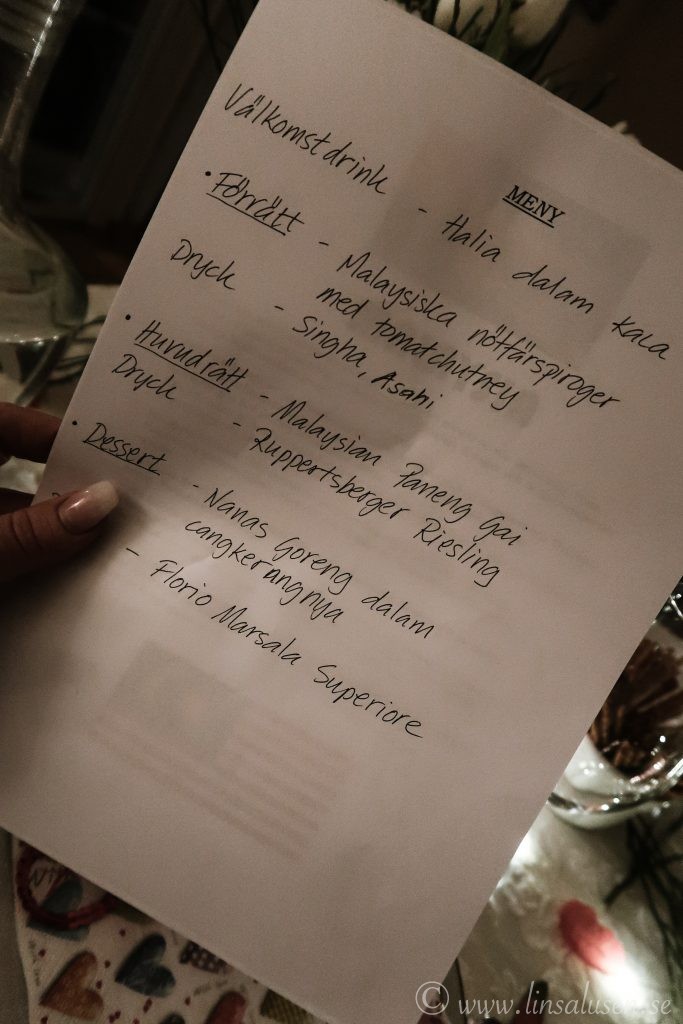 MENY
Välkomstdrink - Halia dalam kaca
• Förrätt - Malaysiska nötfärspiroger
med tomatchutney
Dryck - Singha, Asahi
• Huvudrätt - Malaysian Paneng Gai
Dryck - Ruppertsberger Riesling
• Dessert - Nanas Goreng dalam
cangkerangnya
- Florio Marsala Superiore
© www.linsalusen.se